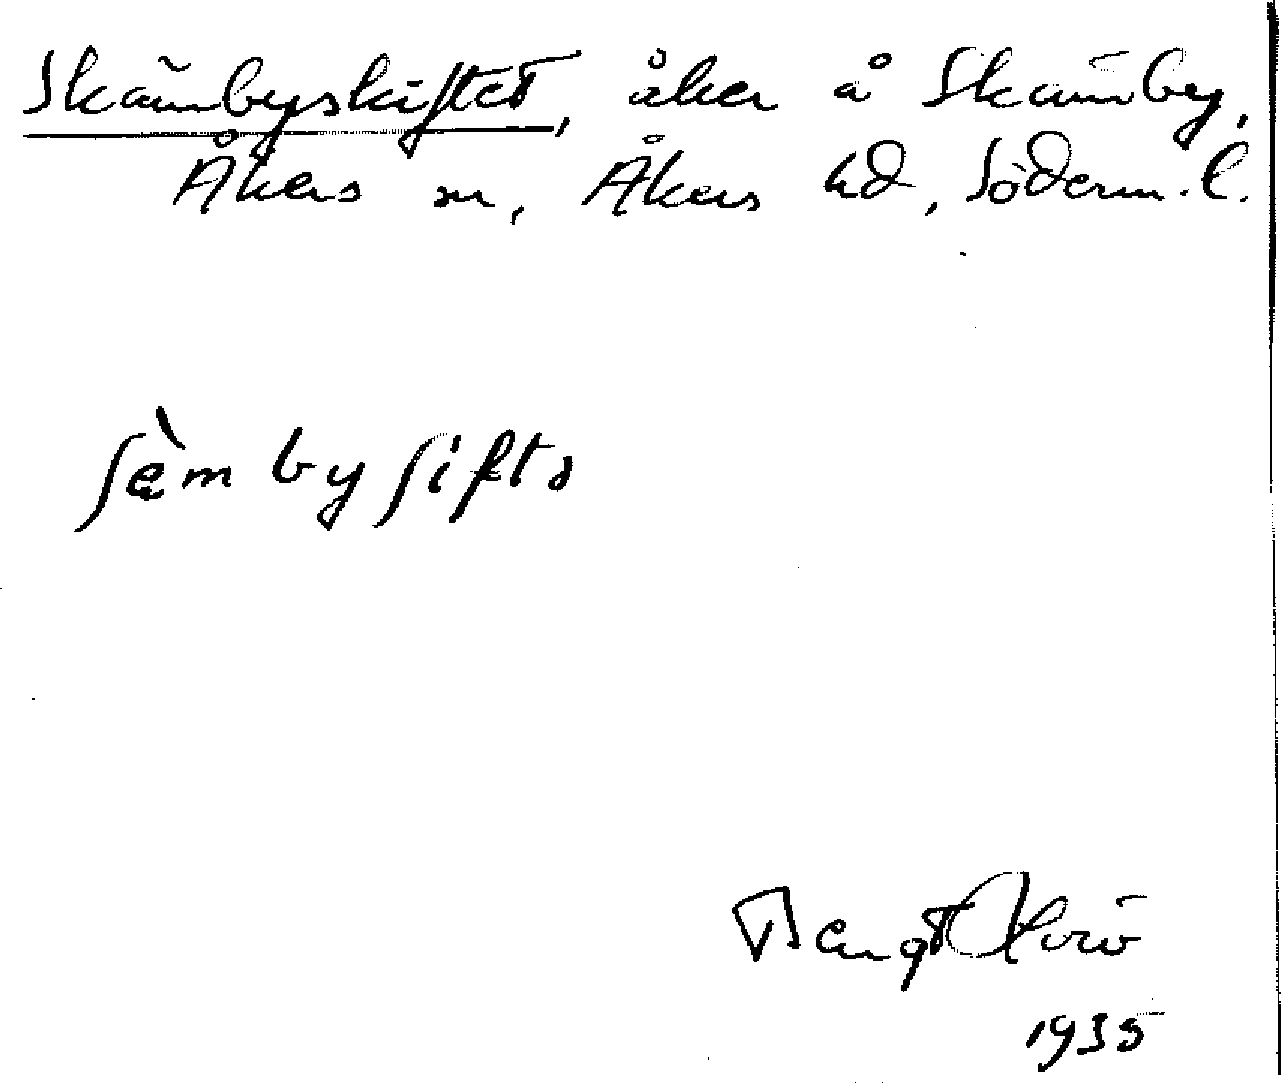 Skämbyskiftet, åker å Skämby,
Åkers sn, Åkers hd, Söderm. l.
ʃè̢m by ʃiftə
Bengt
1935